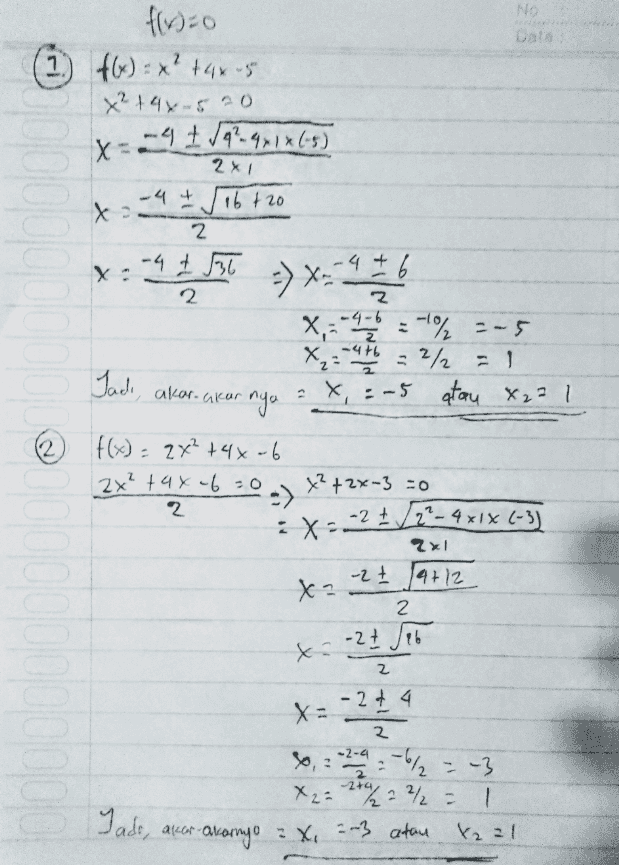 No :
Date :
f(x)=0
① f(x) = x² + 4x - 5
x² + 4x - 5 = 0
x = (-4 ± √(4² - 4×1×(-5))) / (2×1)
x = (-4 ± √(16 + 20)) / 2
x = (-4 ± √36) / 2 => x = (-4 ± 6) / 2
x₁ = (-4-6)/2 = -10/2 = -5
x₂ = (-4+6)/2 = 2/2 = 1
Jadi, akar-akar nya = x₁ = -5 atau x₂ = 1
② f(x) = 2x² + 4x - 6
(2x² + 4x - 6 = 0) / 2 => x² + 2x - 3 = 0
= x = (-2 ± √(2² - 4×1×(-3))) / (2×1)
x = (-2 ± √(4+12)) / 2
x = (-2 ± √16) / 2
x = (-2 ± 4) / 2
x₁ = (-2-4)/2 = -6/2 = -3
x₂ = (-2+4)/2 = 2/2 = 1
Jadi, akar-akarnya = x₁ = -3 atau x₂ = 1